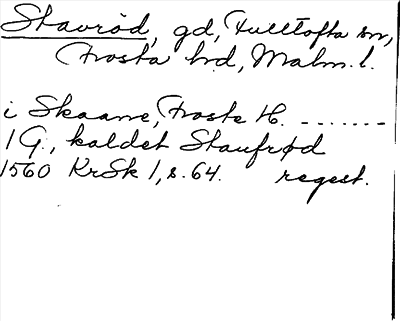 Stavröd, gd, Fulltofta sn,
Frosta hd, Malm. l.
i Skaane, Froste H. --------
1 G., kaldet Staufrød
1560 KrSk 1, s. 64. regest.